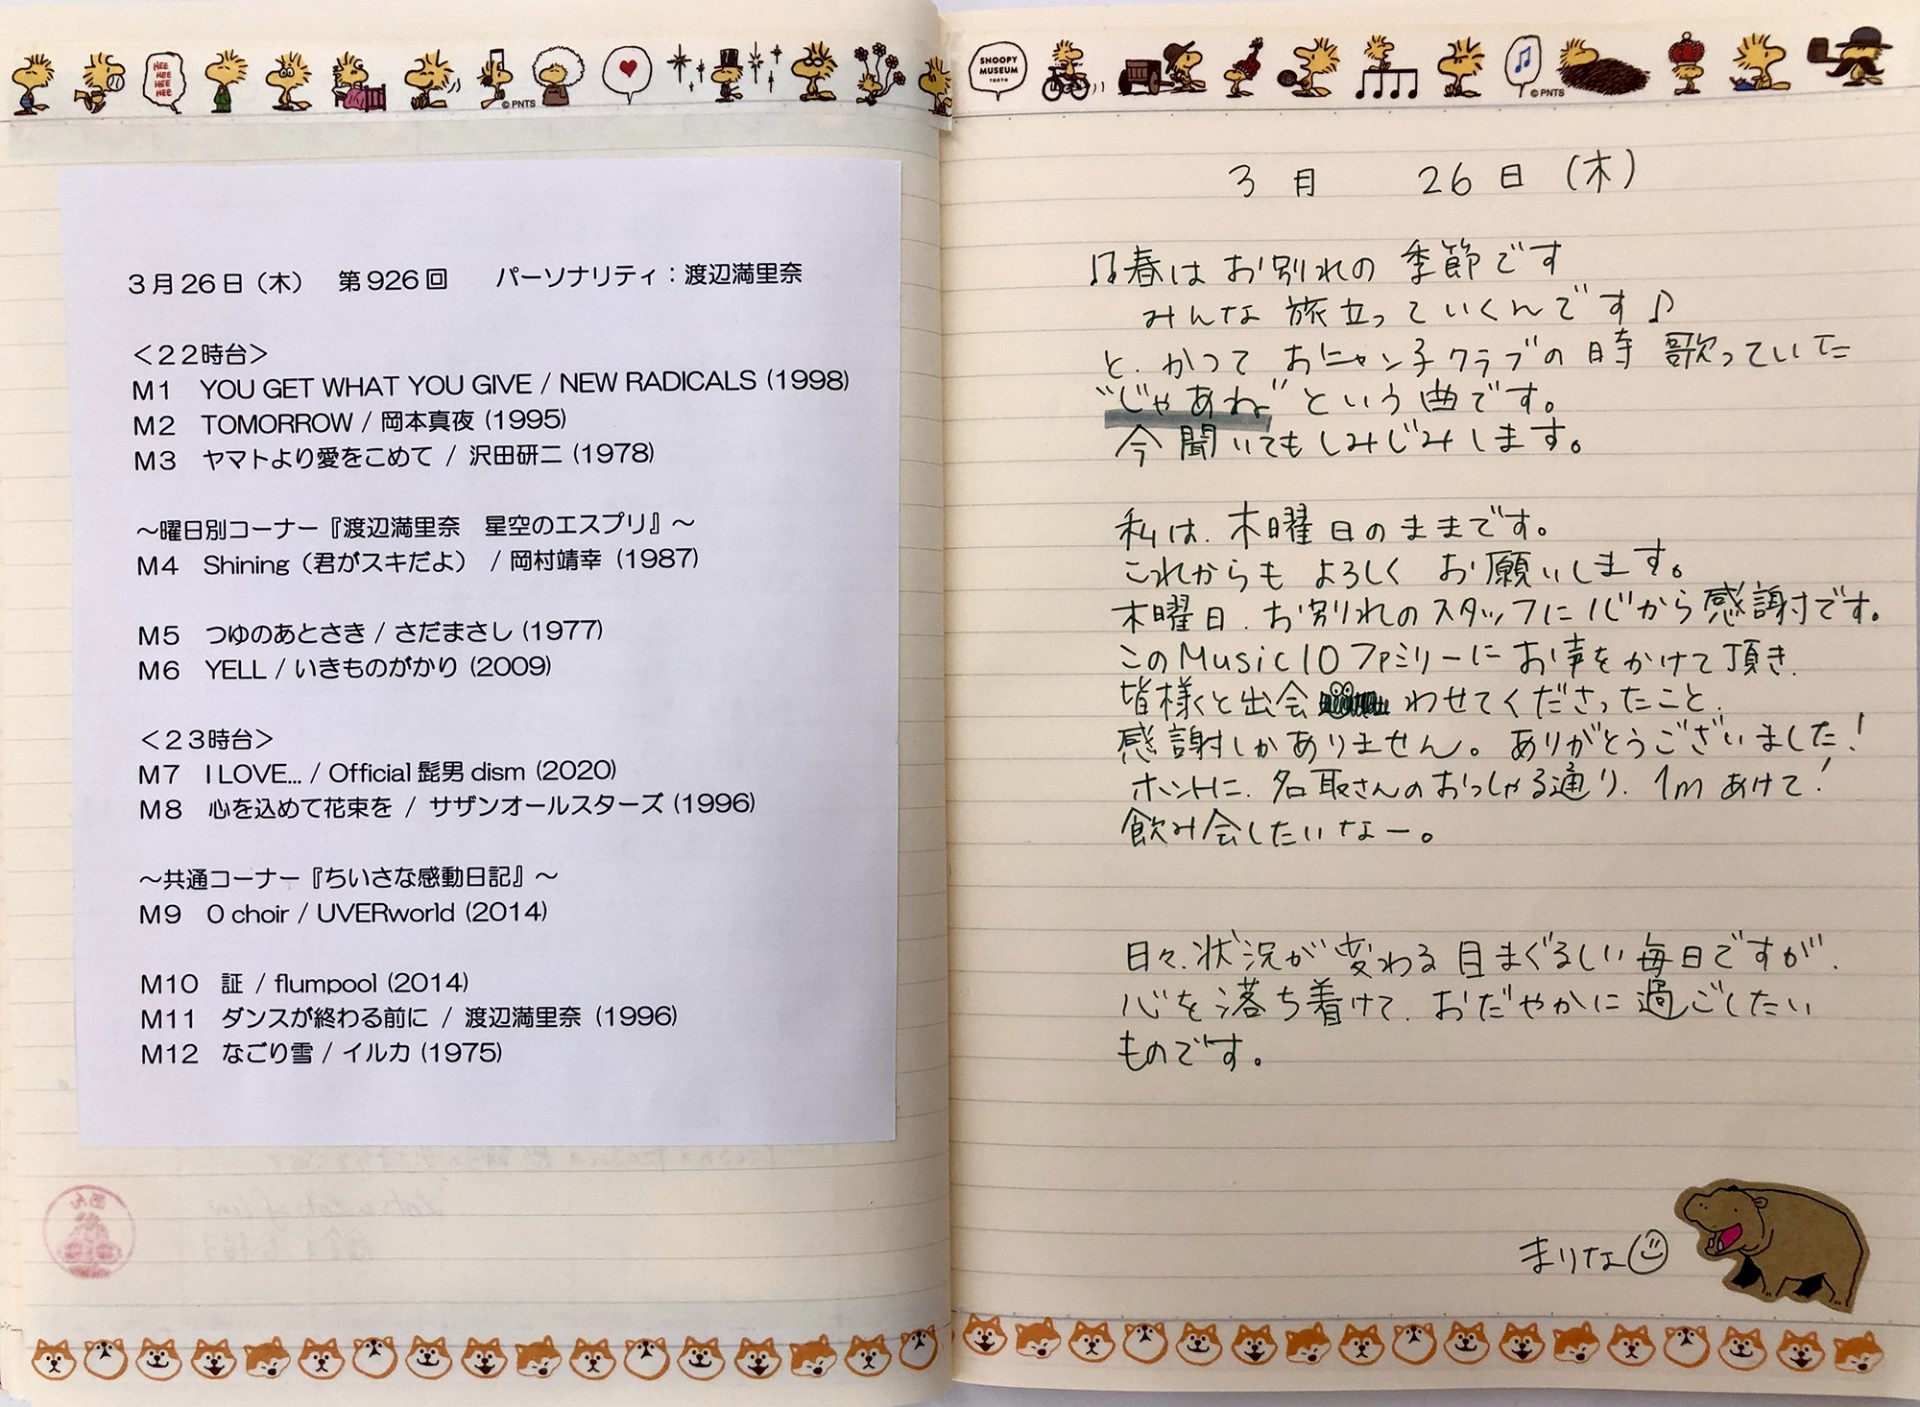 HEE HEE HEE HEE
© PNTS
3月26日（木）　第926回　　パーソナリティ：渡辺満里奈
＜22時台＞
M1　YOU GET WHAT YOU GIVE / NEW RADICALS (1998)
M2　TOMORROW / 岡本真夜 (1995)
M3　ヤマトより愛をこめて / 沢田研二 (1978)
～曜日別コーナー『渡辺満里奈　星空のエスプリ』～
M4　Shining（君がスキだよ） / 岡村靖幸 (1987)
M5　つゆのあとさき / さだまさし (1977)
M6　YELL / いきものがかり (2009)
＜23時台＞
M7　I LOVE... / Official髭男dism (2020)
M8　心を込めて花束を / サザンオールスターズ (1996)
～共通コーナー『ちいさな感動日記』～
M9　0 choir / UVERworld (2014)
M10　証 / flumpool (2014)
M11　ダンスが終わる前に / 渡辺満里奈 (1996)
M12　なごり雪 / イルカ (1975)
SNOOPY MUSEUM TOKYO
© PNTS
3月　26日（木）
♫春はお別れの季節です
みんな旅立っていくんです♪
と、かつておニャン子クラブの時歌っていた
“じゃあね”という曲です。
今聞いてもしみじみします。
私は、木曜日のままです。
これからもよろしくお願いします。
木曜日、お別れのスタッフに心から感謝です。
このMusic10ファミリーにお声をかけて頂き、
皆様と出会わせてくださったこと、
感謝しかありません。ありがとうございました！
ホントに、名取さんのおっしゃる通り、1mあけて！
飲み会したいなー。
日々、状況が変わる目まぐるしい毎日ですが、
心を落ち着けて、おだやかに過ごしたい
ものです。
まりな